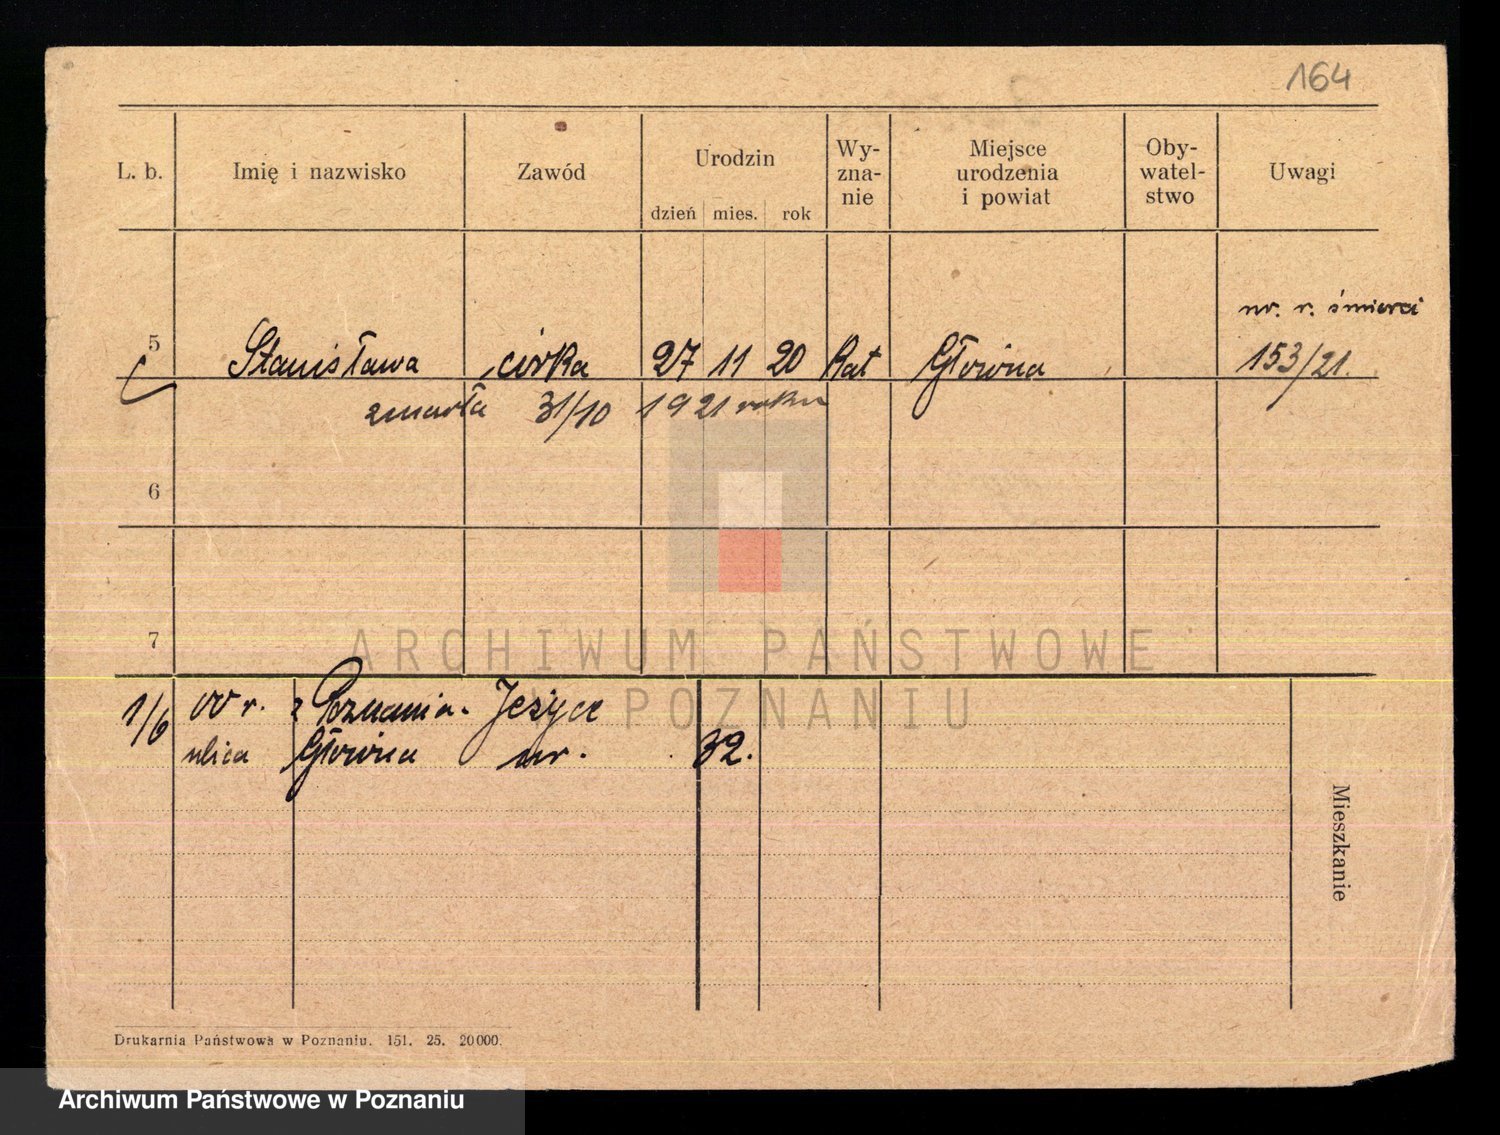 164
L. b. Imię i nazwisko Zawód Urodzin dzień mies. rok Wy-zna-nie Miejsce urodzenia i powiat Oby-watel-stwo Uwagi
nr. r. śmierci
5 Stanisława córka 27 11 20 Kat Główna 153/21.
zmarła 31/10 1921 roku
6
7
ARCHIWUM PAŃSTWOWE
W POZNANIU
1/6 r. z Poznania-Jeżyce
ulica Główna nr. 32.
Mieszkanie
Drukarnia Państwowa w Poznaniu. 151. 25. 20000.
Archiwum Państwowe w Poznaniu